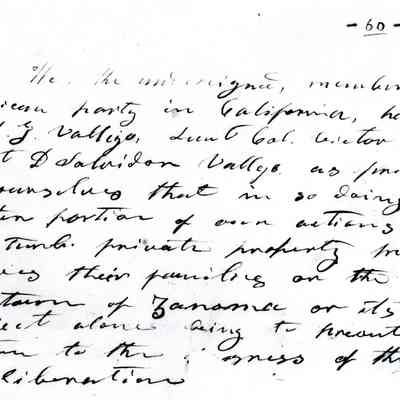 - 60 -
We, the undersigned, member
ican party in California, ha
. J. Vallejo, Lieut Col. Victor
t D Salvidor Vallejo as pris
ourselves that in so doing
portion of our actions
turb private property
ves their families or the
town of Zanoma or its
ject alone being to prevent
to the gress of the
liberation